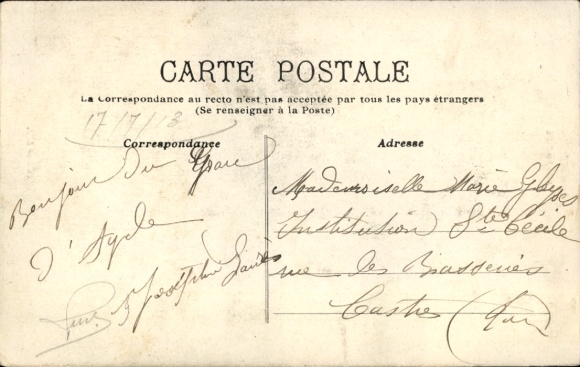 CARTE POSTALE
La Correspondance au recto n'est pas acceptée par tous les pays étrangers
(Se renseigner à la Poste)
17/7/13
Correspondance
Bonjour du
d'
Adresse
Mademoiselle Marie
Institution Ste Cécile
rue des Brasseries
Castres (Tarn)